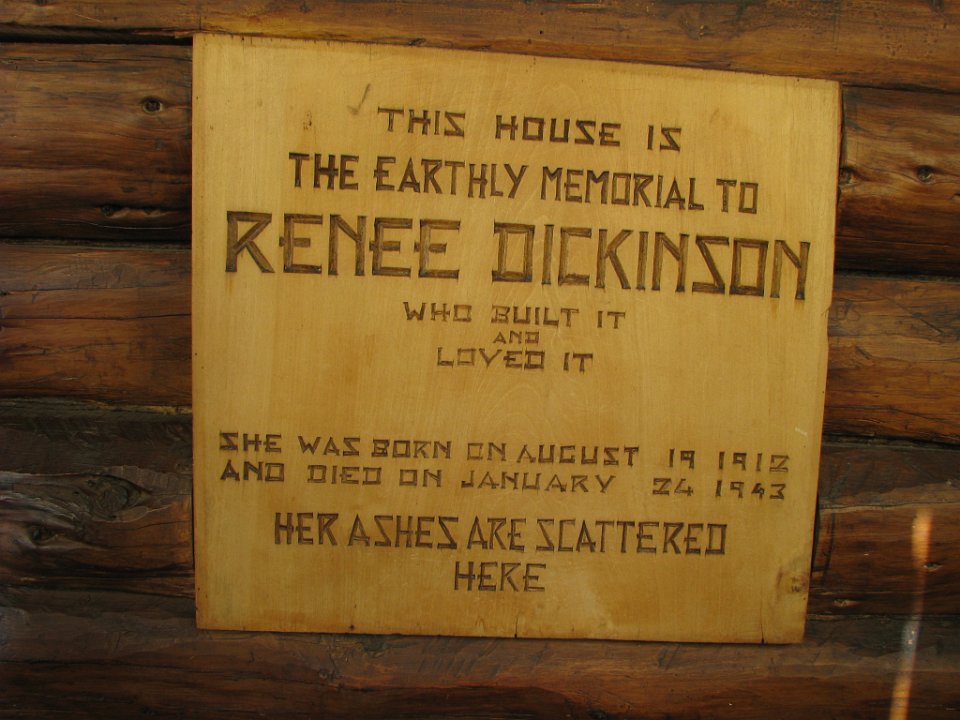 THIS HOUSE IS
THE EARTHLY MEMORIAL TO
RENEE DICKINSON
WHO BUILT IT
AND
LOVED IT
SHE WAS BORN ON AUGUST 19 1912
AND DIED ON JANUARY 24 1943
HER ASHES ARE SCATTERED
HERE